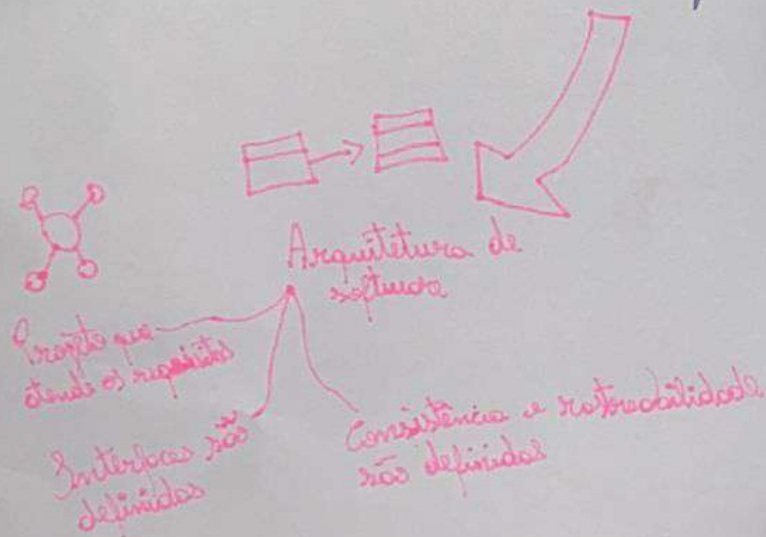 Arquitetura de
software
Projeto que
atende os requisitos
Interfaces são
definidas
Consistência e rastreabilidade
são definidas